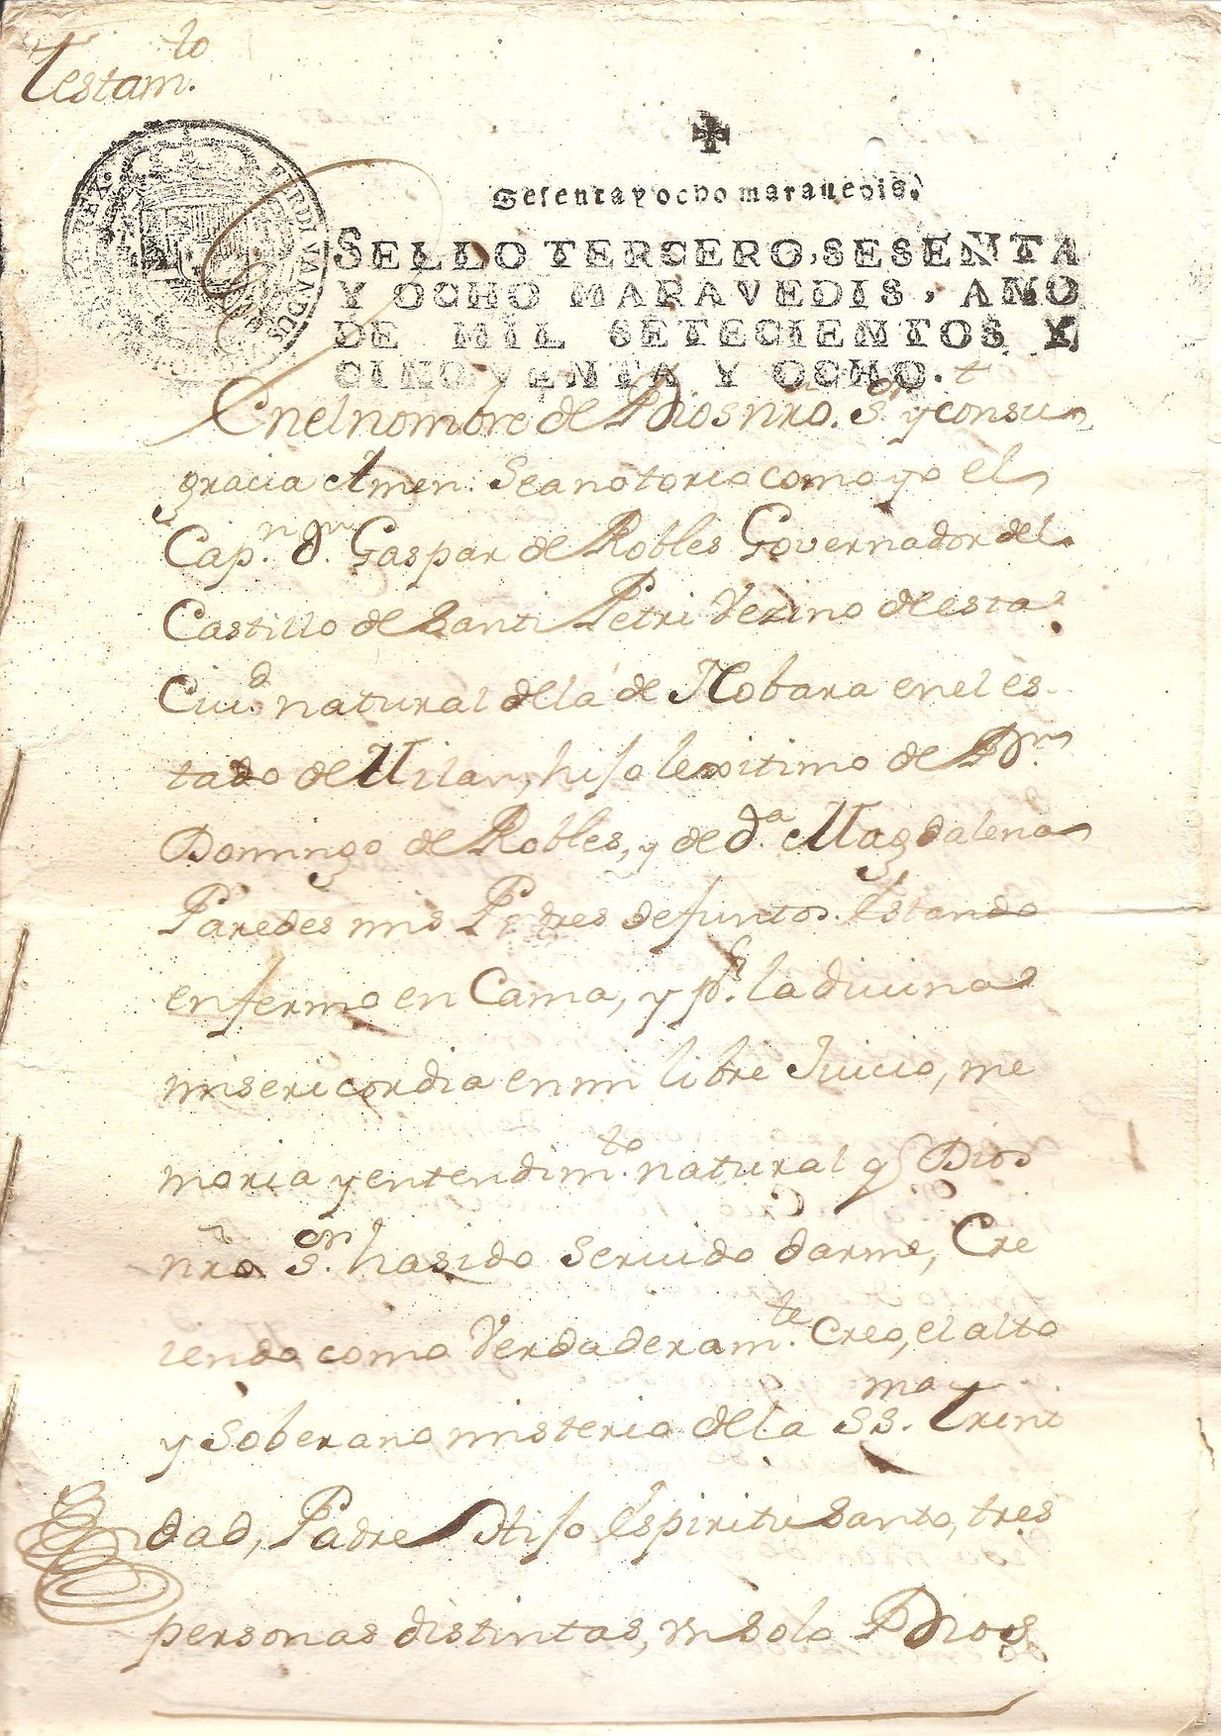 Testam.to
Sesenta y ocho marauedis.
SELLO TERCERO, SESENTA
Y OCHO MARAVEDIS, AÑO
DE MIL SETECIENTOS Y
CINQVENTA Y OCHO.
FERDINANDUS
REX
En el nombre de Dios nro. S.or y con su
gracia Amen. Sea notorio como yo el
Cap.n d.n Gaspar de Robles Governador del
Castillo de Santi Petri Vezino de esta
Ciu.d natural de la de Nobara en el es-
tado de Milan, hijo lexitimo de D.n
Domingo de Robles, y de d.a Magdalena
Paredes mis Padres defuntos. Estando
enfermo en Cama, y p.r la diuina
misericordia en mi libre Juicio, me
moria y entendim.to natural q Dios
nro S.or ha sido seruido darme, Cre
iendo como Verdaderam.te Creo, el alto
y soberano misterio de la SS.ma Trini
dad, Padre Hijo Espiritu Santo, tres
personas distintas, un solo Dios